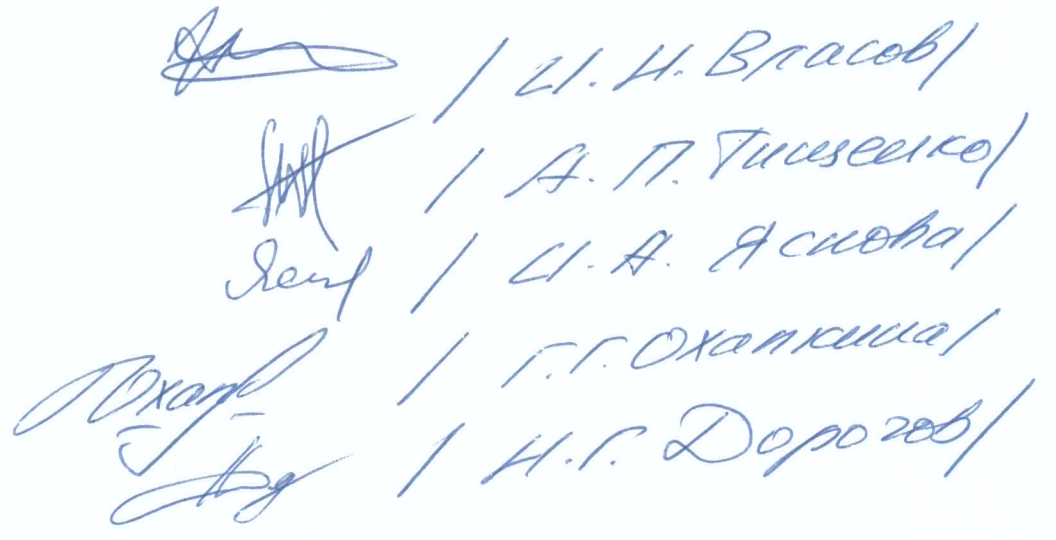 / И. Н. Власов/
/ А. П. Тищенко/
/ И. А. Яснова/
/ Г. Г. Охапкина/
/ Н. Г. Дорогов/